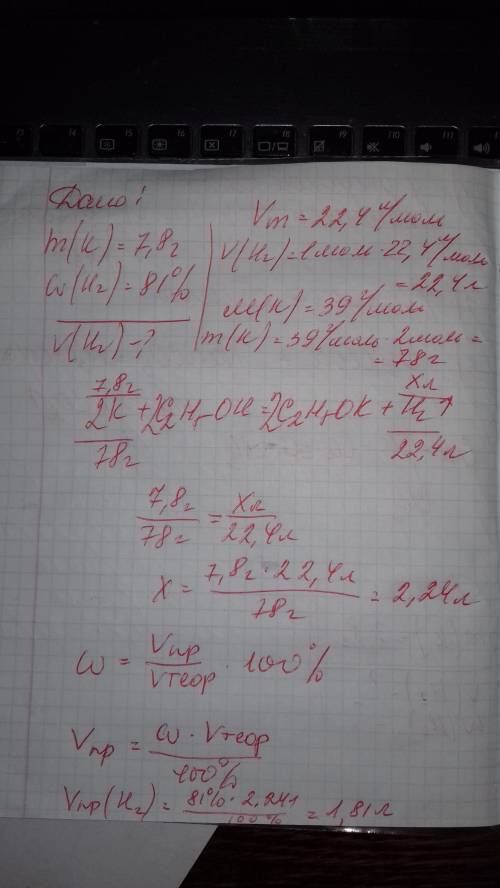 F3 F4 F5 F6 F7 F8 F9 F10 F11
Дано:
m(K) = 7,8г
ω(H₂) = 81%
V(H₂) - ?
Vm = 22,4 л/моль
V(H₂) = 1моль · 22,4 л/моль
= 22,4 л
M(K) = 39 г/моль
m(K) = 39 г/моль · 2моль =
= 78г
7,8г xл
2K + 2C₂H₅OH = 2C₂H₅OK + H₂↑
78г 22,4л
7,8г / 78г = xл / 22,4л
x = 7,8г · 22,4л / 78г = 2,24л
ω = Vпр / Vтеор · 100%
Vпр = ω · Vтеор / 100%
Vпр(H₂) = 81% · 2,24л / 100% = 1,81л